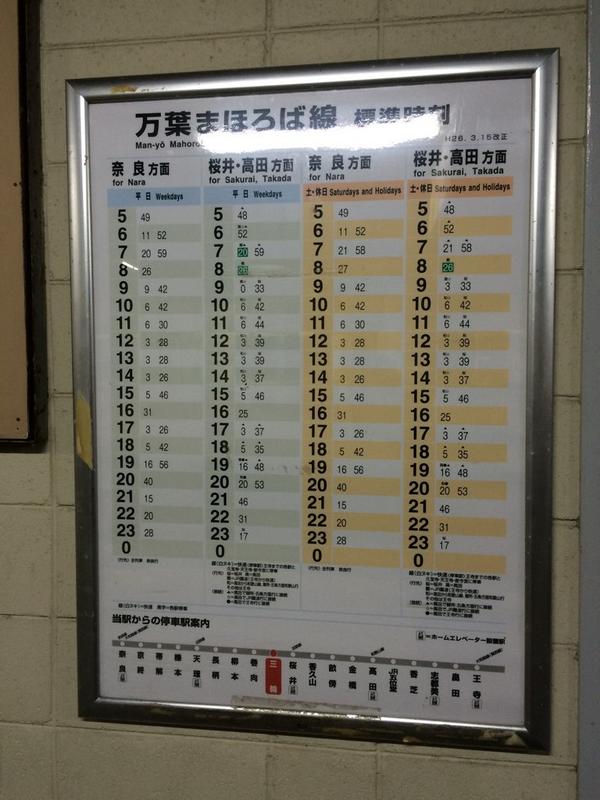 万葉まほろば線 標準時刻
Man-yō Mahoro
H26. 3.15改正
奈良方面
for Nara
平日 Weekdays
5 49
6 11 52
7 20 59
8 26
9 9 42
10 6 42
11 6 30
12 3 28
13 3 28
14 3 26
15 5 46
16 31
17 3 26
18 5 42
19 16 56
20 40
21 15
22 20
23 28
0
桜井・高田方面
for Sakurai, Takada
平日 Weekdays
5 48
6 52
7 20 59
8 26
9 0 33
10 6 42
11 6 44
12 3 39
13 3 39
14 3 37
15 5 46
16 25
17 3 37
18 5 35
19 16 48
20 20 53
21 46
22 31
23 17
0
奈良方面
for Nara
土・休日 Saturdays and Holidays
5 49
6 11 52
7 21 58
8 27
9 9 42
10 6 42
11 6 30
12 3 28
13 3 28
14 3 26
15 5 46
16 31
17 3 26
18 5 42
19 16 56
20 40
21 15
22 20
23 28
0
桜井・高田方面
for Sakurai, Takada
土・休日 Saturdays and Holidays
5 48
6 52
7 21 58
8 26
9 3 33
10 6 42
11 6 44
12 3 39
13 3 39
14 3 37
15 5 46
16 25
17 3 37
18 5 35
19 16 48
20 20 53
21 46
22 31
23 17
0
当駅からの停車駅案内
=ホームエレベーター設置駅
奈良
京終
帯解
櫟本
天理
長柄
柳本
巻向
三輪
桜井
香久山
畝傍
金橋
高田
JR五位堂
香芝
志都美
畠田
王寺